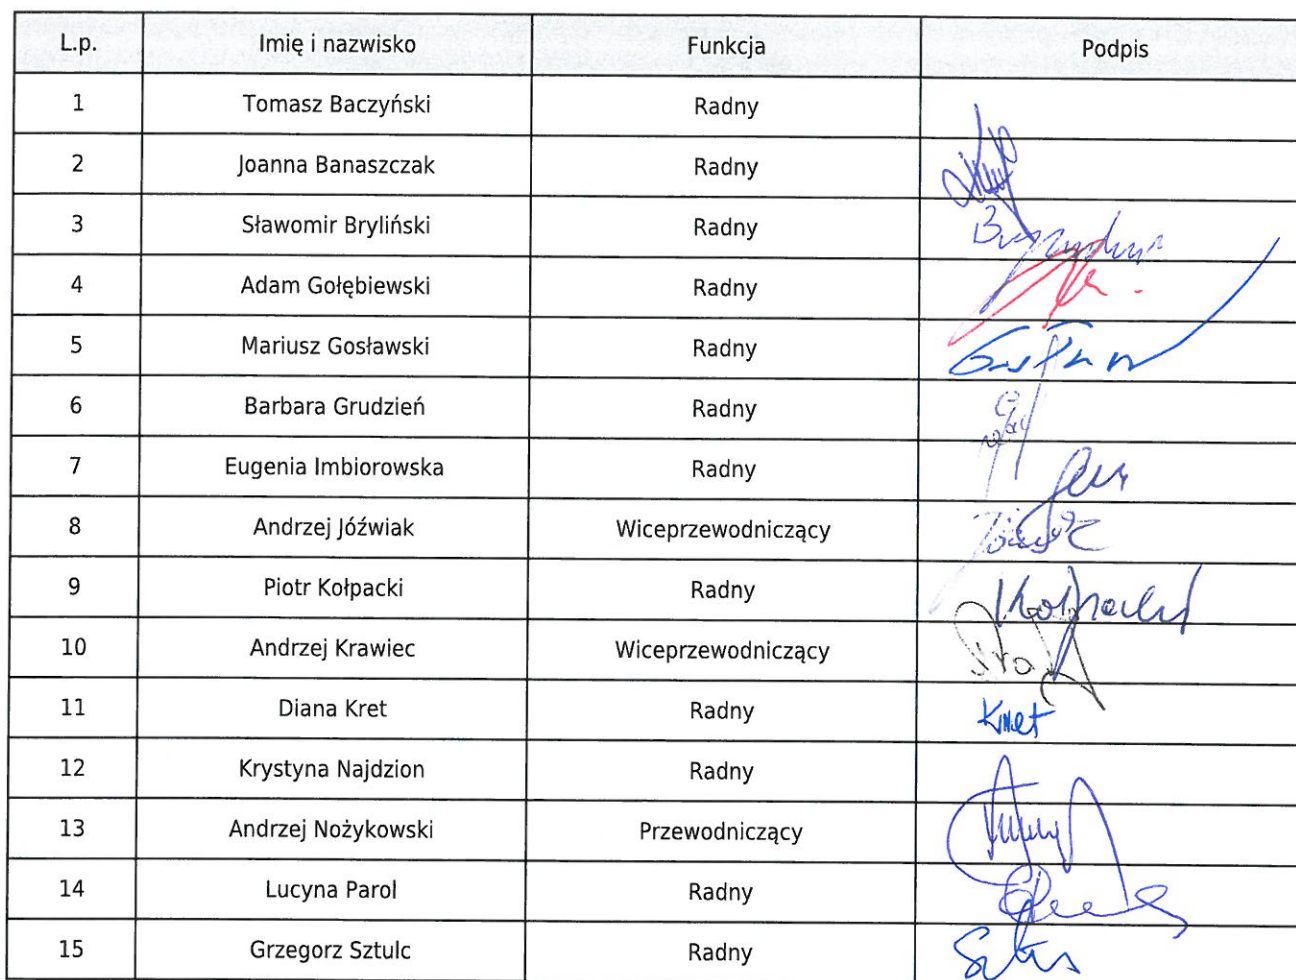 L.p. Imię i nazwisko Funkcja Podpis
1 Tomasz Baczyński Radny
2 Joanna Banaszczak Radny
3 Sławomir Bryliński Radny
4 Adam Gołębiewski Radny
5 Mariusz Gosławski Radny
6 Barbara Grudzień Radny
7 Eugenia Imbiorowska Radny
8 Andrzej Jóźwiak Wiceprzewodniczący
9 Piotr Kołpacki Radny Kołpacki
10 Andrzej Krawiec Wiceprzewodniczący
11 Diana Kret Radny Kret
12 Krystyna Najdzion Radny
13 Andrzej Nożykowski Przewodniczący
14 Lucyna Parol Radny
15 Grzegorz Sztulc Radny